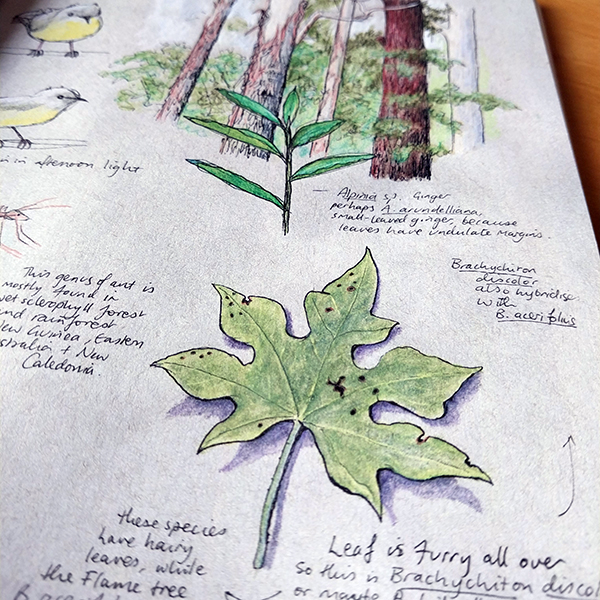 in afternoon light
Alpinia sp. Ginger
perhaps A. arundelliana,
small-leaved ginger, because
leaves have undulate margins.
This genus of ant is
mostly found in
wet sclerophyll forest
and rainforest
New Guinea, Eastern
stralia + New
Caledonia.
Brachychiton
discolor
also hybridises
with
B. acerifolius
these species
have hairy
leaves, while
the Flame tree
Leaf is furry all over
So this is Brachychiton discol
or maybe